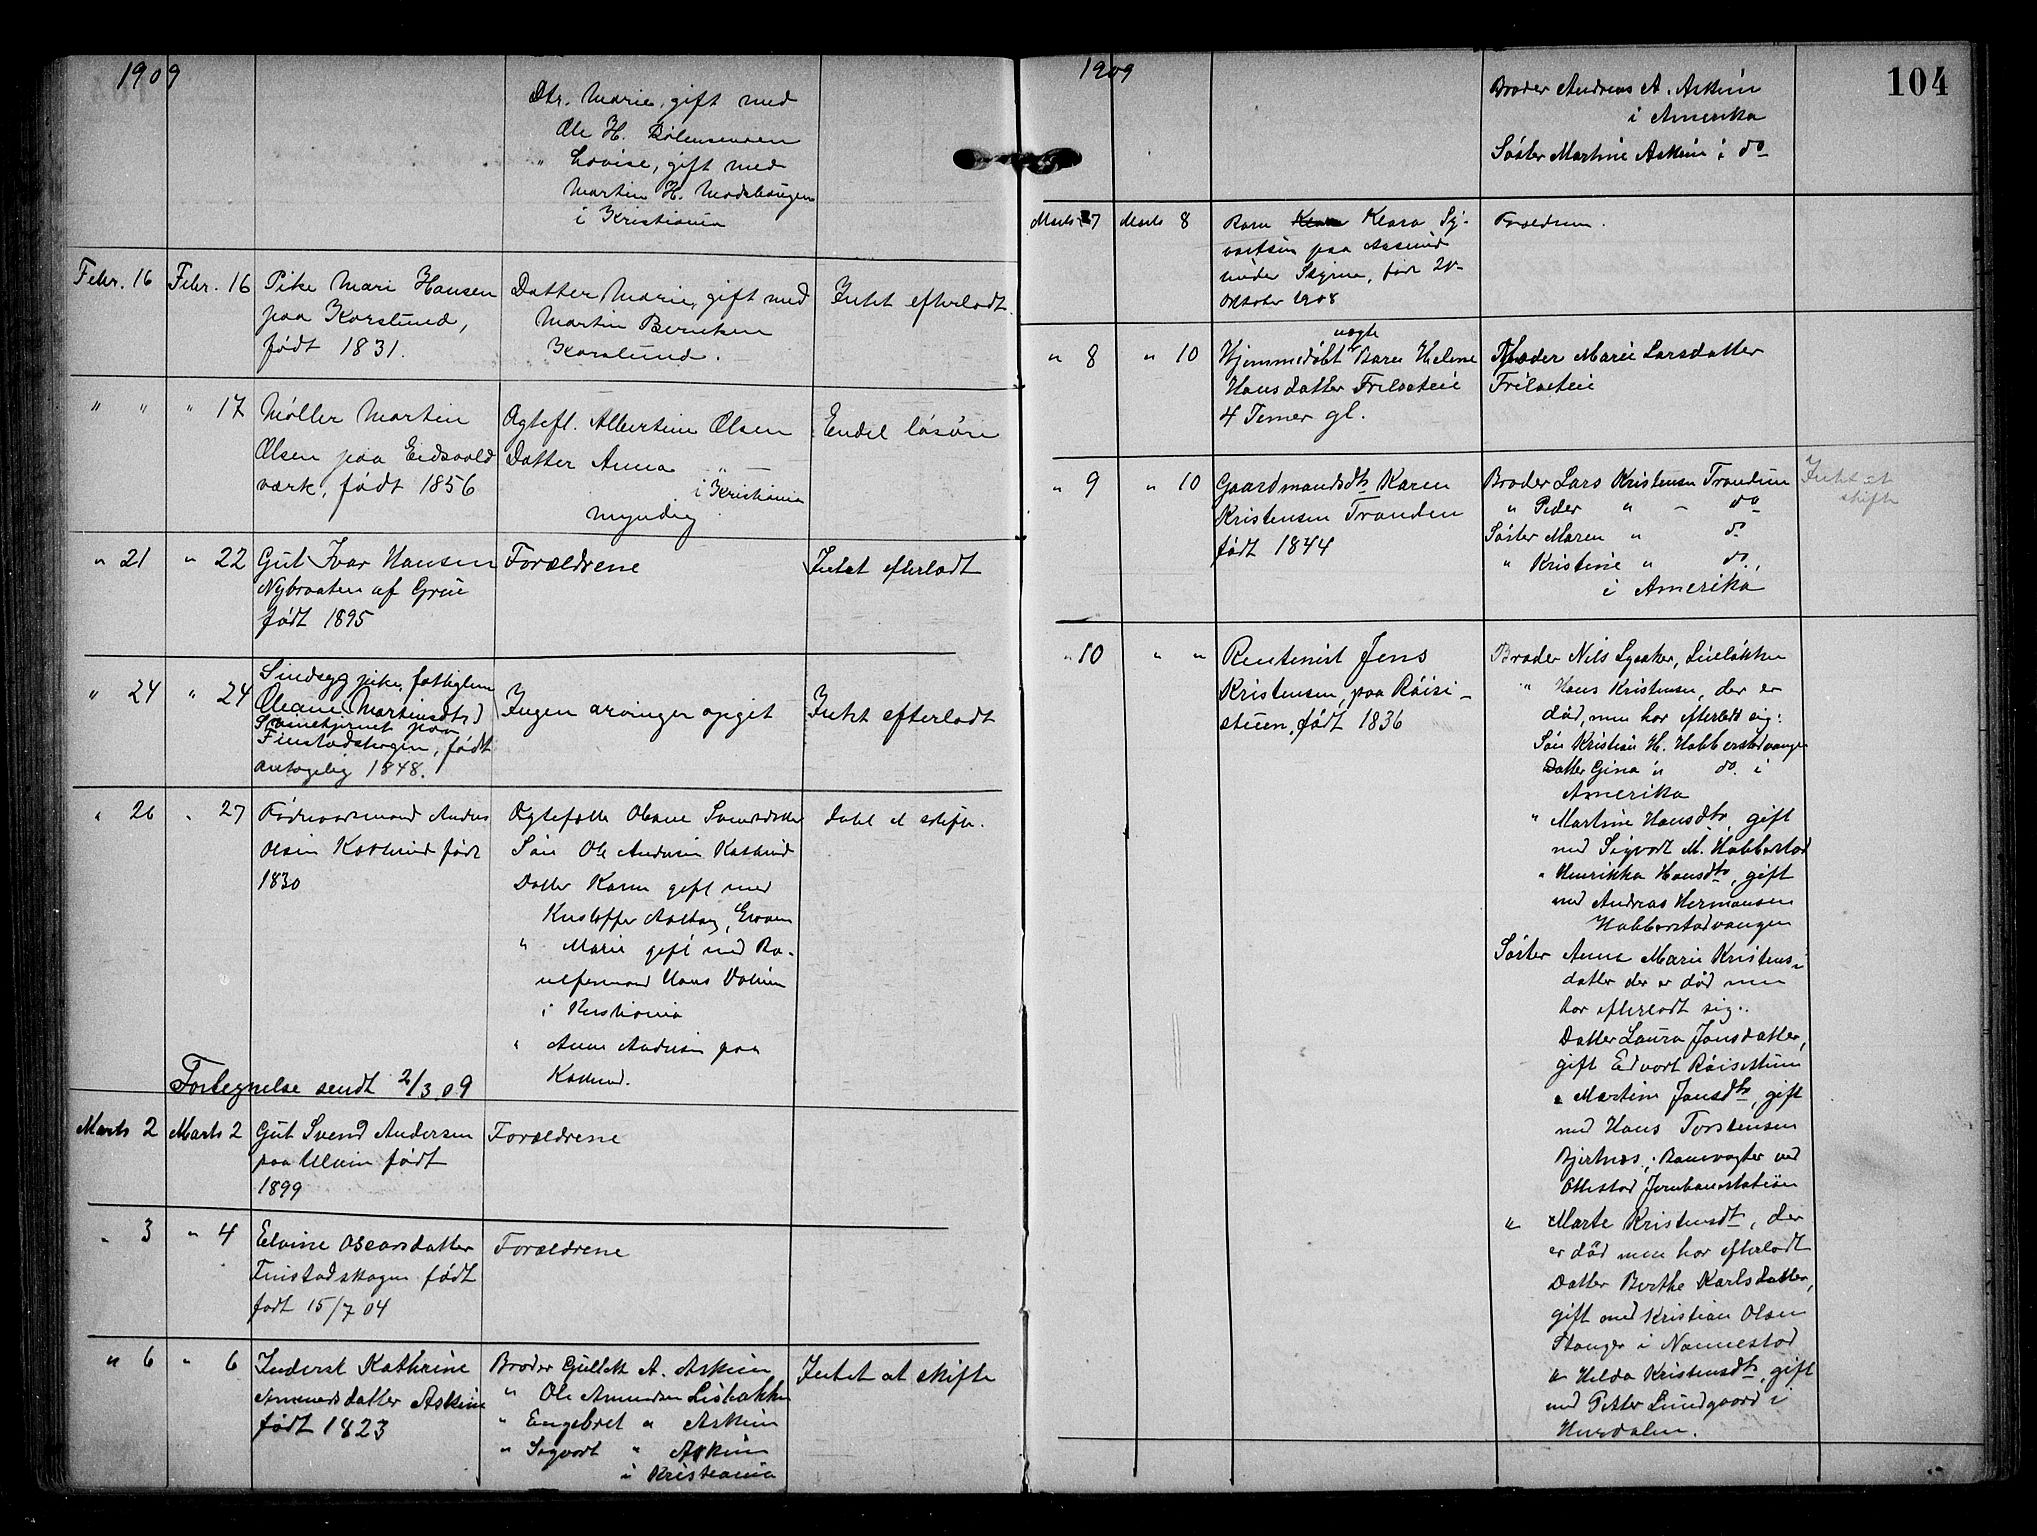 1909
Dtr. Marie, gift med
Ole H.
" Lovise, gift med
Martin H. Modshaugen
i Kristiania
Febr. 16 Febr. 16 Pike Mari Hansen
paa Korslund,
født 1831.
Datter Marie, gift med
Martin Berntsen
Korslund.
Intet efterladt.
" " " 17 Møller Martin
Olsen paa Eidsvold
værk, født 1856
Ægtefl. Albertine Olsen
Datter Anna " —
i Kristiania
myndig
Endel løsøre
" 21 " 22 Gut Ivar Hansen
Nybraaten af Grue
født 1895
Forældrene
Intet efterladt
" 24 " 24 Sindsyg pike, fattiglem
Oleane (Martinsdtr)
Svinehjernet paa
Finstadskogen, født
antagelig 1848.
Ingen arvinger opgit
Intet efterladt
" 26 " 27 Føderaadsmand Anders
Olsen født
1830
Ægtefælle Oleane
Søn Ole Andersen
Datter Karen gift med
Kristoffer
" Marie gift med
Hans
i Kristiania
" Anne Andersen paa
Intet at skifte.
Fortegnelse sendt 2/3.09
Marts 2 Marts 2 Gut Svend Andersen
paa Ulvin født
1899
Forældrene
" 3 " 4 Elvine Oscarsdatter
Finstadskogen født
født 15/7 04
Forældrene
" 6 " 6 Inderst Kathrine
Amundsdatter Askim
født 1823
Broder Gullik A. Askim
" Ole Amundsen Lisbakken
" Engebret " Askim
" Sigvart " Askim
i Kristiania
Intet at skifte
1909
104
Broder Andreas A. Askim
i Amerika
Søster Martine Askim i do
Marts 7 Marts 8 Barn Klara Sig-
vartsen paa
under født 20-
Oktober 1908
Forældrene.
" 8 " 10 Hjemmedøbt uægte Karen Helene
Hansdatter Frilseteie
4 Timer gl.
Moder Marie Larsdatter
Frilseteie
" 9 " 10 Gaardmandsdtr Karen
Kristensen Tranden
født 1844
Broder Lars Kristensen Trandum
" Peder " – do
Søster Maren " do
" Kristine " do.,
i Amerika
Intet at
skifte
" 10 " " Rentenist Jens
Kristensen, paa Røisi-
stuen, født 1836
Broder Nils Lysaker, Lilleløkken
" Hans Kristensen, der er
død, men har efterladt sig:
Søn Kristian H. Habberstadvangen
Datter Gina " do. i
Amerika
" Martine Hansdtr, gift
med Sigvart M. Habberstad
" Henrikka Hansdtr, gift
med Andreas Hermansen
Habberstadvangen
Søster Anne Marie Kristens-
datter der er død men
har efterladt sig:
Datter Laura Jonsdatter,
gift Edvart Røisistuen
" Martine Jonsdtr, gift
med Hans Torstensen
Bjertnæs, Banevogter ved
Ottestad Jernbanestation
" Marte Kristensdtr, der
er død men har efterladt
Datter Berthe Karlsdatter,
gift med Kristian Olsen
Stanger i Nannestad
" Helda Kristensdtr, gift
med Petter Lundgaard i
Hurdalen.